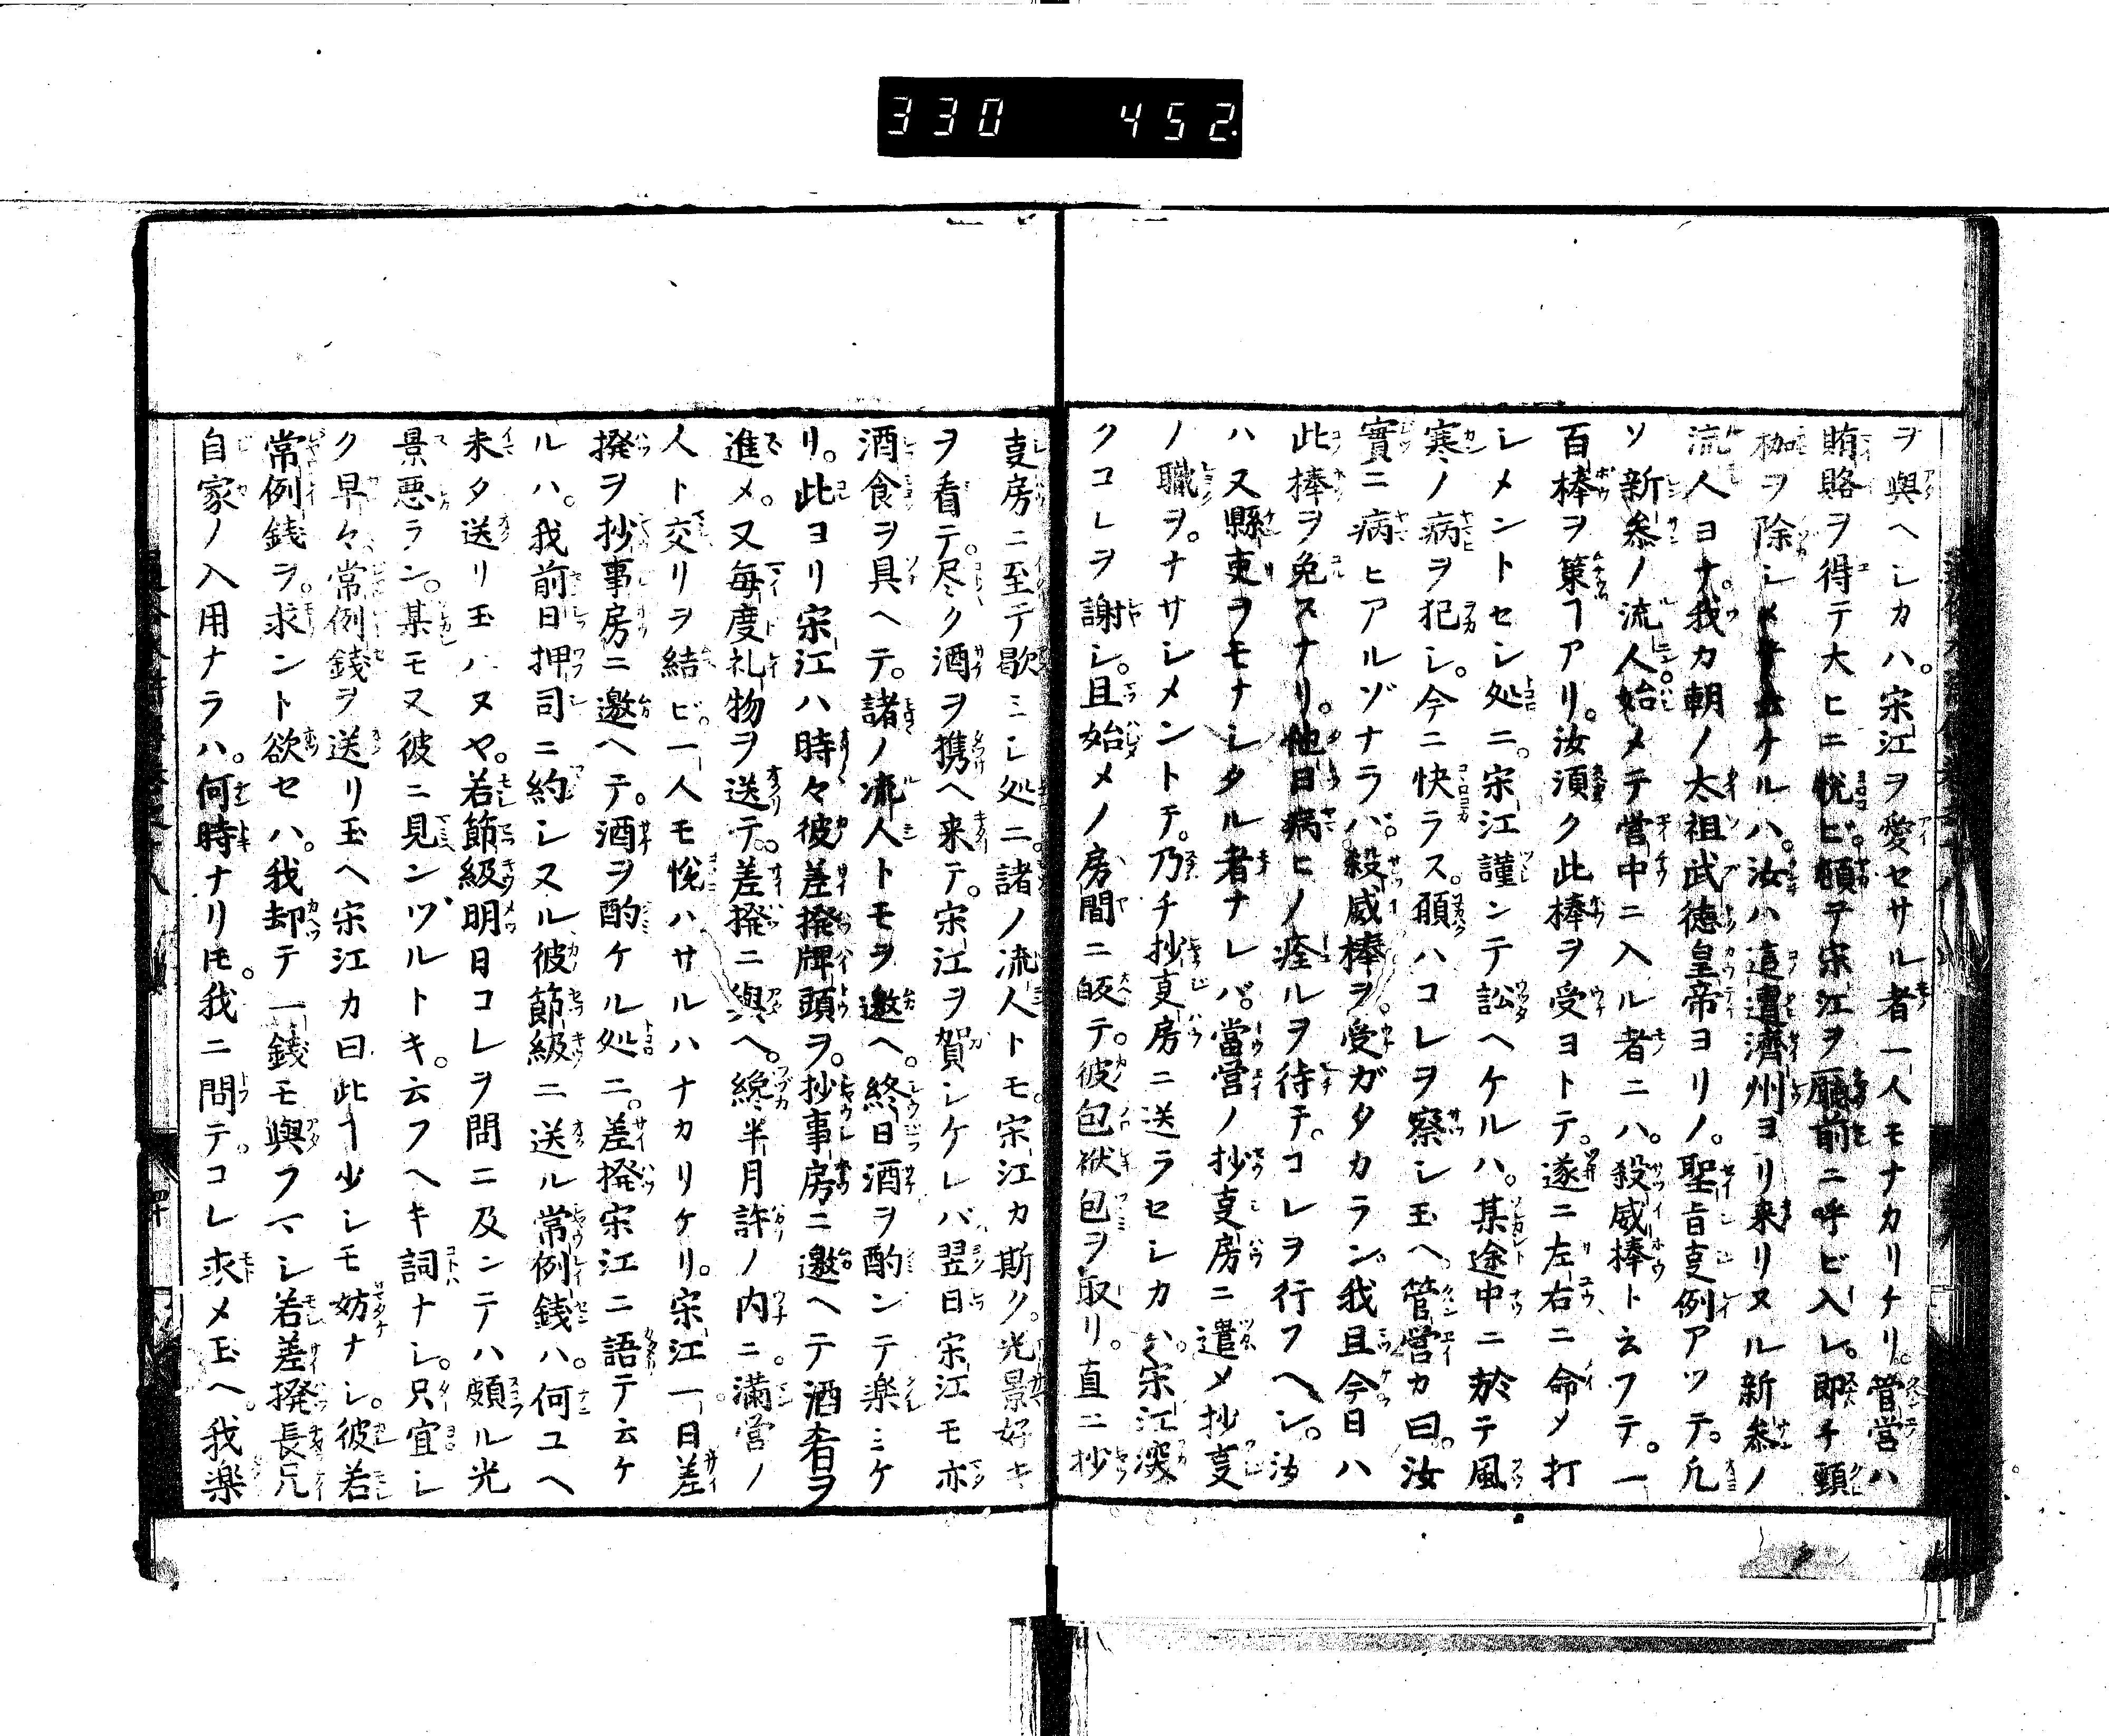 330 452
ヲ與ヘシカハ。宋江ヲ愛セサル者一人モナカリケリ。管営ハ
賄賂ヲ得テ大ヒニ悦ビ。頓テ宋江ヲ廳前ニ呼ビ入レ。即チ頸
枷ヲ除シメテ云ケルハ。汝ハ這遭濟州ヨリ来リヌル新参ノ
流人ヨナ。我カ朝ノ太祖武徳皇帝ヨリノ。聖旨㕝例アツテ。凡
ソ新参ノ流人始メテ営中ニ入ル者ニハ。殺威棒ト云フテ。一
百棒ヲ策ヿアリ。汝須ク此棒ヲ受ヨトテ。遂ニ左右ニ命メ打
シメントセシ処ニ。宋江謹ンテ訟ヘケルハ。某途中ニ於テ風
寒ノ病ヲ犯シ。今ニ快ラス。願ハコレヲ察シ玉ヘ。管営カ曰。汝
實ニ病ヒアルゾナラハ。殺威棒ヲ。受ガタカラン。我且今日ハ
此棒ヲ免スナリ。他日病ヒノ痊ルヲ待テ。コレヲ行フヘシ。汝
ハ又縣吏ヲモナシタル者ナレバ。當営ノ抄㕝房ニ遣メ抄㕝
ノ職ヲ。ナサシメントテ。乃チ抄㕝房ニ送ラセシカハ。宋江深
クコレヲ謝シ。且始メノ房間ニ皈テ。彼包袱包ヲ取リ。直ニ抄
㕝房ニ至テ歇ミシ処ニ。諸ノ流人トモ。宋江カ斯ク。光景好キ
ヲ看テ。尽ク酒ヲ携ヘ来テ。宋江ヲ賀シケレバ、翌日宋江モ亦
酒食ヲ具ヘテ。諸ノ流人トモヲ邀ヘ。終日酒ヲ酌ンテ楽ミケ
リ。此ヨリ宋江ハ時々彼差撥牌頭ヲ。抄事房ニ邀ヘテ酒肴ヲ
進メ。又毎度礼物ヲ送テ。差撥ニ與ヘ。纔半月許ノ内ニ。滿営ノ
人ト交リヲ結ビ。一人モ悦ハサルハナカリケリ。宋江一日差
撥ヲ抄事房ニ邀ヘテ。酒ヲ酌ケル処ニ。差撥宋江ニ語テ云ケ
ルハ。我前日押司ニ約シヌル彼節級ニ送ル常例銭ハ。何ユヘ
未タ送リ玉ハヌヤ。若節級明日コレヲ問ニ及ンテハ頗ル光
景悪ラン。某モ又彼ニ見ンヅルトキ。云フヘキ詞ナシ。只宜シ
ク早々。常例銭ヲ送リ玉ヘ宋江カ曰此ヿ少シモ妨ナシ。彼若
常例銭ヲ。求ント欲セハ。我却テ一銭モ與フマシ若差撥長兄
自家ノ入用ナラハ。何時ナリ𪜈。我ニ問テ。コレ求メ玉ヘ。我楽